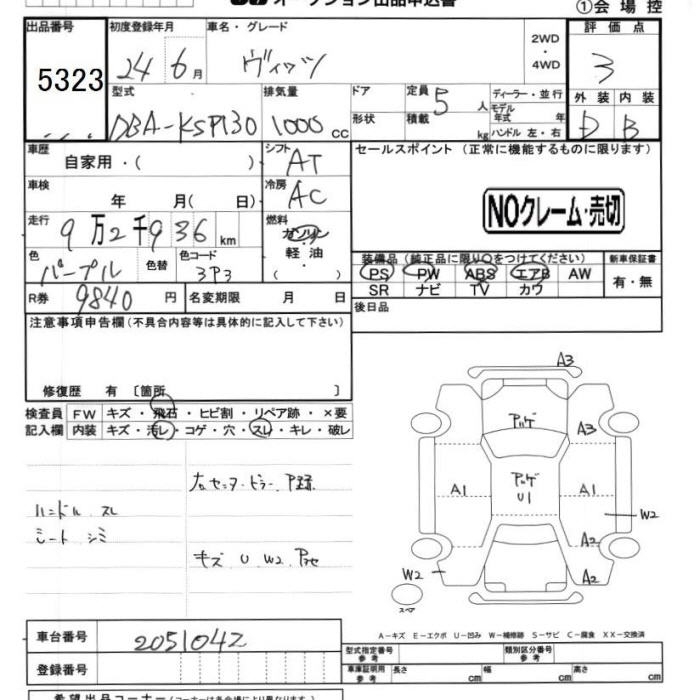 オークション出品申込書
①会場控
出品番号 初度登録年月 車名・グレード 2WD・4WD 評価点
5323 24 6月 ヴィッツ 3
型式 排気量 ドア 定員 5人 ディーラー・並行 外装 内装
DBA-KSP130 1000cc 形状 積載 kg モデル年式 年 ハンドル 左・右 D B
車歴 自家用・( ) シフト AT セールスポイント (正常に機能するものに限ります)
車検 年 月( 日) 冷房 AC
NOクレーム・売切
走行 9万2千936km 燃料 ガソリン・軽油
色 パープル 色替 色コード 3P3
装備品 (純正品に限り○をつけてください) 新車保証書
PS PW ABS エアB AW 有・無
SR ナビ TV カワ
R券 9840円 名変期限 月 日 後日品
注意事項申告欄 (不具合内容等は具体的に記入して下さい)
修復歴 有 〔箇所 〕
検査員 FW キズ・飛石・ヒビ割・リペア跡・×要
記入欄 内装 キズ・汚レ・コゲ・穴・スレ・キレ・破レ
ハンドル スレ
シート シミ
キズ U W2
A3
アハゲ
A3
A1
アハゲ
U1
A1
W2
A2
W2
A2
スペア
A-キズ E-エクボ U-凹み W-補修跡 S-サビ C-腐食 XX-交換済
車台番号 2051042
型式指定番号 参考 類別区分番号 参考
登録番号 車庫証明用 参考 長さ cm 幅 cm 高さ cm
希望出品コーナー